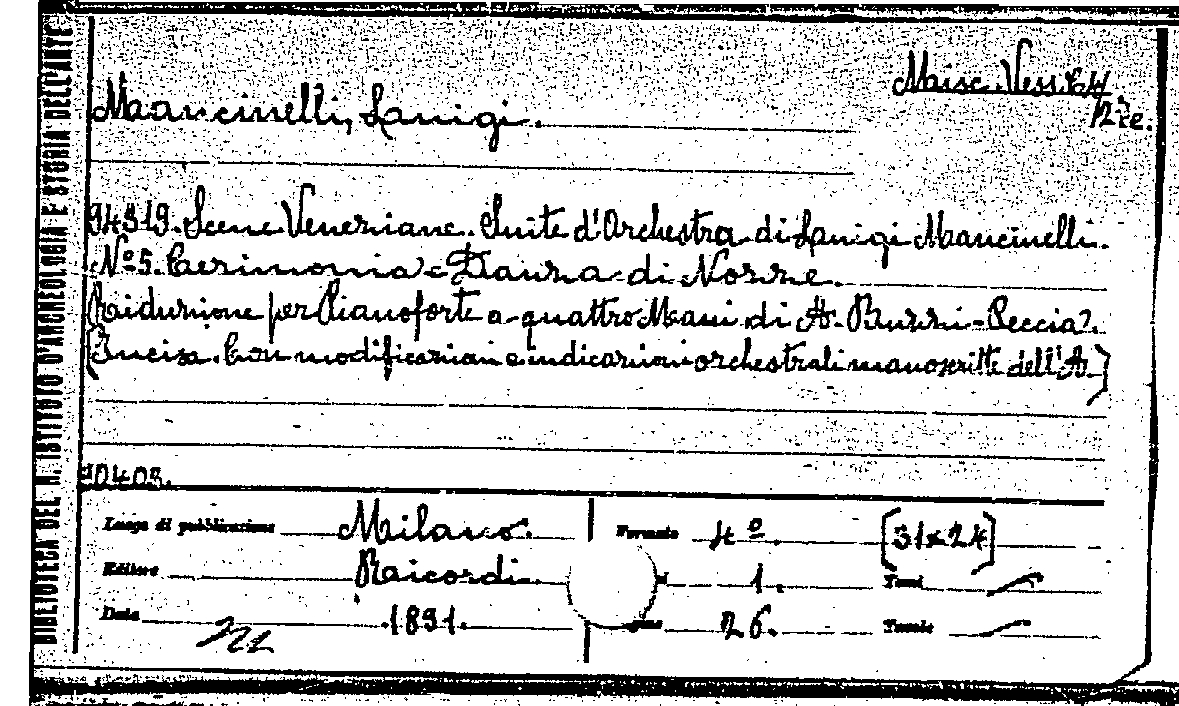 BIBLIOTECA DEL R. ISTITUTO D'ARCHEOLOGIA E STORIA DELL'ARTE
Misc. Vess.
Mancinelli, Luigi.
94319. Scene Veneziane. Suite d'Orchestra di Luigi Mancinelli.
Nº 5. Cerimonia e Danza di Nozze.
Riduzione per Pianoforte a quattro Mani di A. Buzzi-Peccia.
[Incisa. Con modificazioni e indicazioni orchestrali manoscritte dell'A.]
Luogo di pubblicazione Milano. Formato 4º. [31x24]
Editore Ricordi. 1. Tomi
Data 1891. 26. Tavole